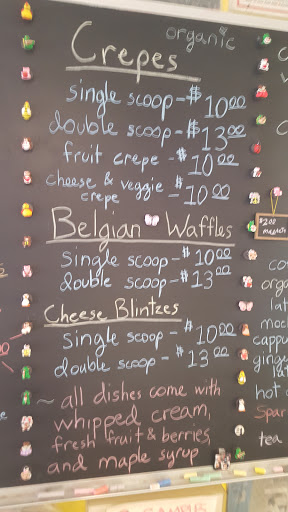 organic
Crepes
single scoop - $10.00
double scoop - $13.00
fruit crepe - $10.00
cheese & veggie
crepe - $10.00
Belgian Waffles
single scoop - $10.00
double scoop - $13.00
Cheese Blintzes
single scoop - $10.00
double scoop - $13.00
~ all dishes come with
whipped cream,
fresh fruit & berries,
and maple syrup
$2.00
magnets
co
orga
lat
moc
cappu
ginge
lat
hot
Spar
tea